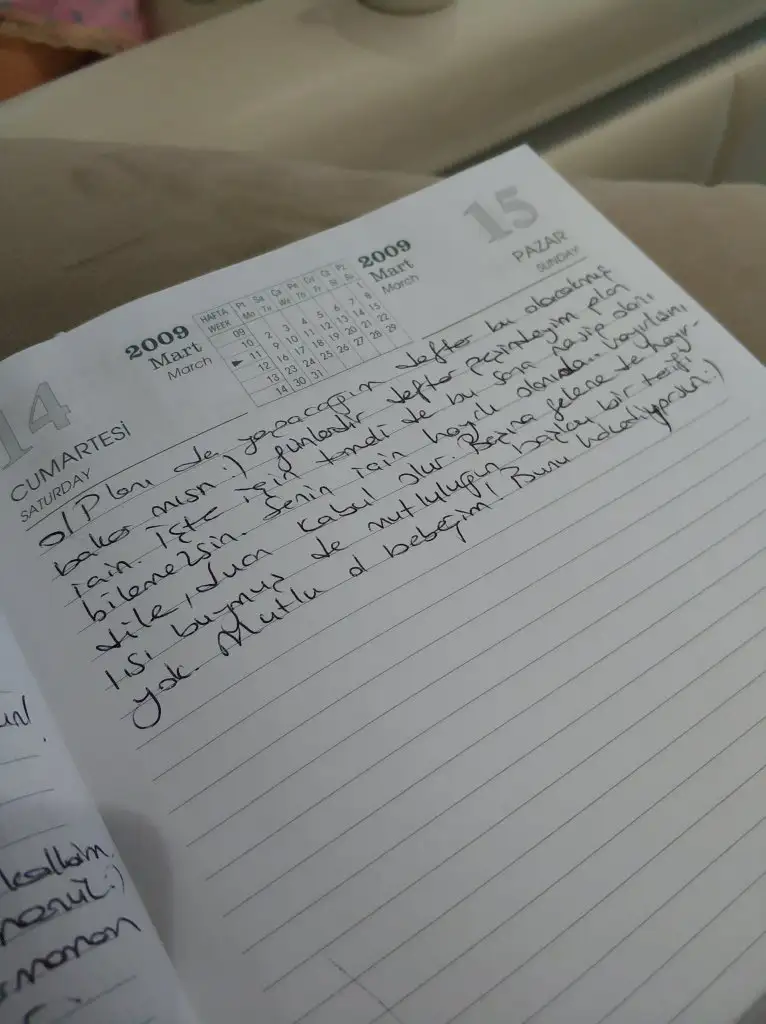 14
CUMARTESİ
SATURDAY
2009
Mart
March
HAFTA Pt Sa Ça Pe Cu Ct Pz
WEEK Mo Tu We Th Fr St Su
09 1
10 2 3 4 5 6 7 8
11 9 10 11 12 13 14 15
12 16 17 18 19 20 21 22
13 23 24 25 26 27 28 29
14 30 31
2009
Mart
March
15
PAZAR
SUNDAY
Planı de yapacağım defter bu olacakmış
bakar mısın:) günlerdir defter peşindeyim plan
için. İşte için de bu sana nasip olanı
bilemezsin. Senin için hayırlı olanından hayırlısını
dile, duan kabul olur. Başına gelene de hayır-
lısı buymuş de mutluluğun başka bir tarifi
yok. Mutlu ol bebeğim! Bunu hakediyorsun:)